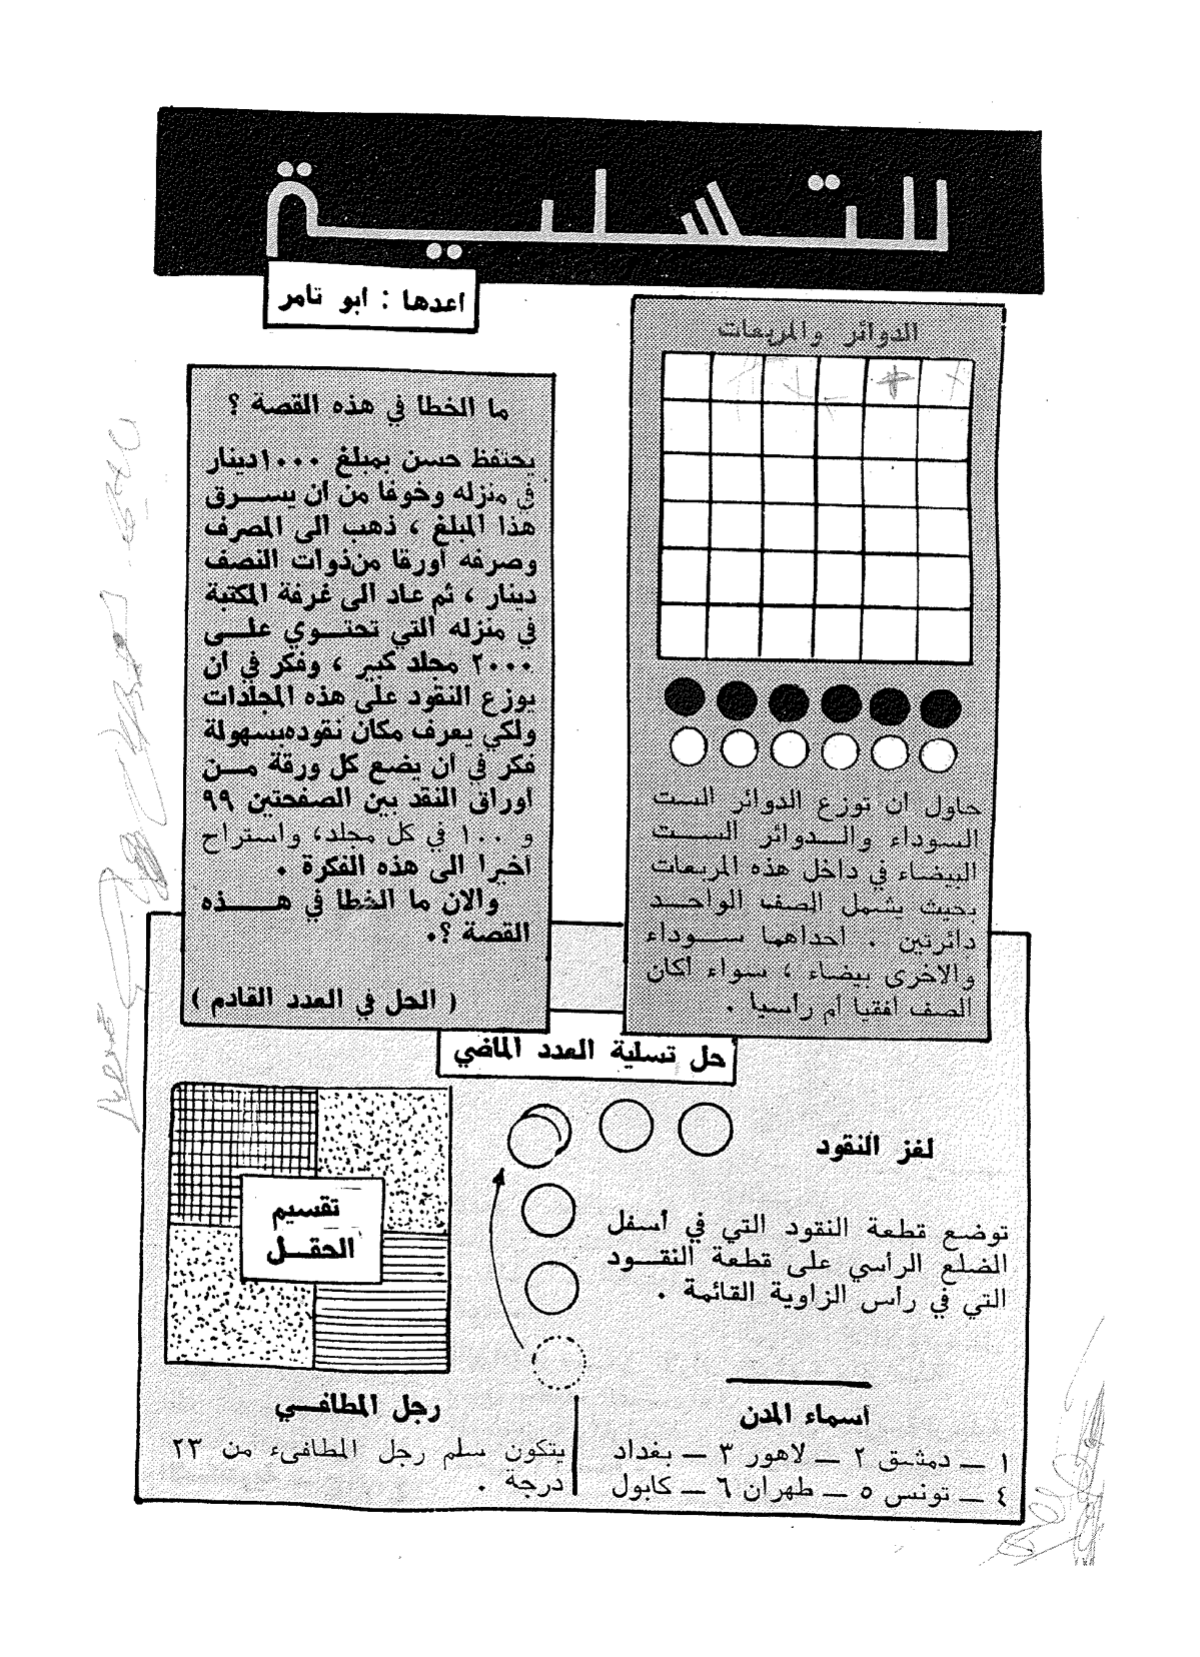 للتسلية
اعدها : ابو تامر
الدوائر والمربعات
حاول ان توزع الدوائر الست
السوداء والــدوائر الســت
البيضاء في داخل هذه المربعات
بحيث يشمل الصف الواحــد
دائرتين . احداهما ســوداء
والاخرى بيضاء ، سواء أكان
الصف افقيا أم رأسيا .
ما الخطا في هذه القصة ؟
يحتفظ حسن بمبلغ ١٠٠٠دينار
في منزله وخوفا من ان يســرق
هذا المبلغ ، ذهب الى المصرف
وصرفه أورقا من ذوات النصف
دينار ، ثم عاد الى غرفة المكتبة
في منزله التي تحتــوي علــى
٢٠٠٠ مجلد كبير ، وفكر في أن
يوزع النقود على هذه المجلدات
ولكي يعرف مكان نقوده بسهولة
فكر في ان يضع كل ورقة مــن
اوراق النقد بين الصفحتين ٩٩
و ١٠٠ في كل مجلد، واستراح
اخيرا الى هذه الفكرة .
والان ما الخطا في هــــذه
القصة ؟.
( الحل في العدد القادم )
حل تسلية العدد الماضي
لغز النقود
توضع قطعة النقود التي في أسفل
الضلع الرأسي على قطعة النقــود
التي في راس الزاوية القائمة .
تقسيم
الحقــل
أسماء المدن
١ ــ دمشق ٢ ــ لاهور ٣ ــ بغداد
٤ ــ تونس ٥ ــ طهران ٦ ــ كابول
رجل المطافــي
يتكون سلم رجل المطافىء من ٢٣
درجة .